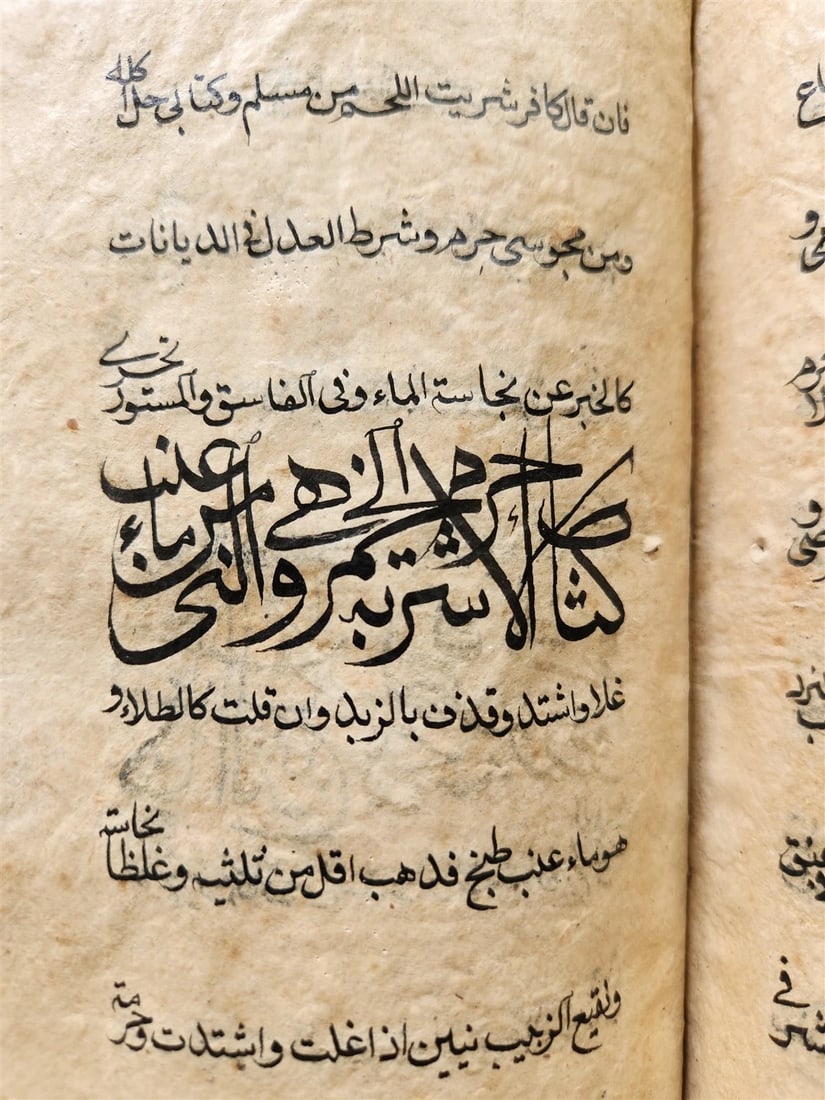 فان قال كافر شريت اللحم من مسلم وكتابي حل اكله
ومن مجوسي حرم وشرط العدل في الديانات
كالخبر عن نجاسة الماء وفي الفاسق والمستور تحرى
كتاب الاشربة حرم الخمر وهي الني من ماء عنب
غلا واشتد وقذف بالزبد وان قلت كالطلاء و
هو ماء عنب طبخ فذهب اقل من ثلثيه وغلظا نجاسة
ونقيع الزبيب نيين اذا غلت واشتدت وحرمة